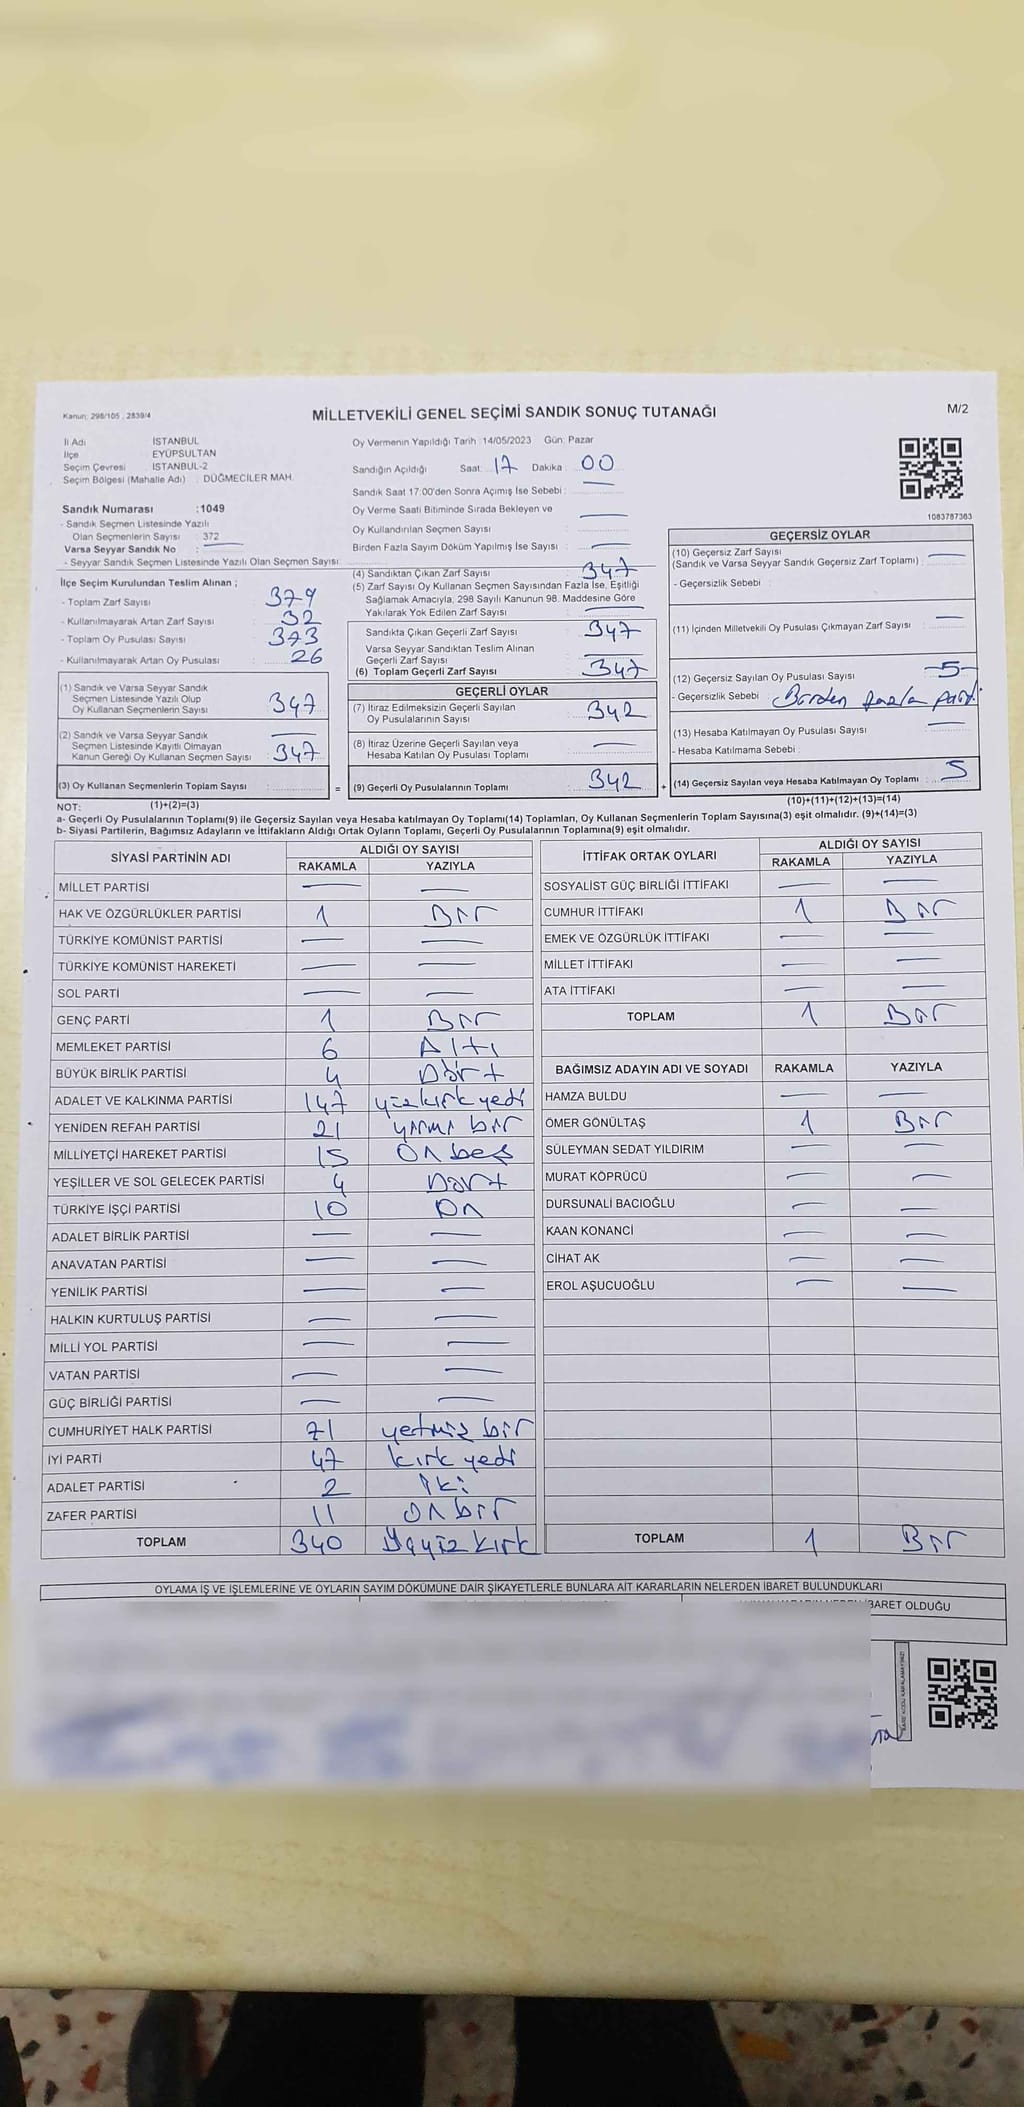 Kanun: 298/105 , 2839/4
MİLLETVEKİLİ GENEL SEÇİMİ SANDIK SONUÇ TUTANAĞI
M/2
İl Adı : İSTANBUL
İlçe : EYÜPSULTAN
Seçim Çevresi : İSTANBUL-2
Seçim Bölgesi (Mahalle Adı) : DÜĞMECİLER MAH.
Sandık Numarası :1049
- Sandık Seçmen Listesinde Yazılı
Olan Seçmenlerin Sayısı : 372
Varsa Seyyar Sandık No : —
- Seyyar Sandık Seçmen Listesinde Yazılı Olan Seçmen Sayısı:
Oy Vermenin Yapıldığı Tarih :14/05/2023 Gün: Pazar
Sandığın Açıldığı Saat: 17 Dakika : 00
Sandık Saat 17.00'den Sonra Açımış İse Sebebi : —
Oy Verme Saati Bitiminde Sırada Bekleyen ve
Oy Kullandırılan Seçmen Sayısı : —
Birden Fazla Sayım Döküm Yapılmış İse Sayısı : —
1083787363
İlçe Seçim Kurulundan Teslim Alınan ;
- Toplam Zarf Sayısı : 379
- Kullanılmayarak Artan Zarf Sayısı : 32
- Toplam Oy Pusulası Sayısı : 373
- Kullanılmayarak Artan Oy Pusulası : 26
(1) Sandık ve Varsa Seyyar Sandık
Seçmen Listesinde Yazılı Olup
Oy Kullanan Seçmenlerin Sayısı : 347
(2) Sandık ve Varsa Seyyar Sandık
Seçmen Listesinde Kayıtlı Olmayan
Kanun Gereği Oy Kullanan Seçmen Sayısı : —
347
(3) Oy Kullanan Seçmenlerin Toplam Sayısı :
(1)+(2)=(3)
(4) Sandıktan Çıkan Zarf Sayısı : 347
(5) Zarf Sayısı Oy Kullanan Seçmen Sayısından Fazla İse, Eşitliği
Sağlamak Amacıyla, 298 Sayılı Kanunun 98. Maddesine Göre
Yakılarak Yok Edilen Zarf Sayısı : —
Sandıkta Çıkan Geçerli Zarf Sayısı : 347
Varsa Seyyar Sandıktan Teslim Alınan
Geçerli Zarf Sayısı : —
(6) Toplam Geçerli Zarf Sayısı : 347
GEÇERLİ OYLAR
(7) İtiraz Edilmeksizin Geçerli Sayılan
Oy Pusulalarının Sayısı : 342
(8) İtiraz Üzerine Geçerli Sayılan veya
Hesaba Katılan Oy Pusulası Toplamı : —
= (9) Geçerli Oy Pusulalarının Toplamı : 342
GEÇERSİZ OYLAR
(10) Geçersiz Zarf Sayısı
(Sandık ve Varsa Seyyar Sandık Geçersiz Zarf Toplamı) : —
- Geçersizlik Sebebi :
(11) İçinden Milletvekili Oy Pusulası Çıkmayan Zarf Sayısı : —
(12) Geçersiz Sayılan Oy Pusulası Sayısı : -5-
- Geçersizlik Sebebi : Birden fazla parti
(13) Hesaba Katılmayan Oy Pusulası Sayısı : —
- Hesaba Katılmama Sebebi :
+ (14) Geçersiz Sayılan veya Hesaba Katılmayan Oy Toplamı : 5
(10)+(11)+(12)+(13)=(14)
NOT:
a- Geçerli Oy Pusulalarının Toplamı(9) ile Geçersiz Sayılan veya Hesaba katılmayan Oy Toplamı(14) Toplamları, Oy Kullanan Seçmenlerin Toplam Sayısına(3) eşit olmalıdır. (9)+(14)=(3)
b- Siyasi Partilerin, Bağımsız Adayların ve İttifakların Aldığı Ortak Oyların Toplamı, Geçerli Oy Pusulalarının Toplamına(9) eşit olmalıdır.
SİYASİ PARTİNİN ADI ALDIĞI OY SAYISI
RAKAMLA YAZIYLA
MİLLET PARTİSİ — —
HAK VE ÖZGÜRLÜKLER PARTİSİ 1 Bir
TÜRKİYE KOMÜNİST PARTİSİ — —
TÜRKİYE KOMÜNİST HAREKETİ — —
SOL PARTİ — —
GENÇ PARTİ 1 Bir
MEMLEKET PARTİSİ 6 Altı
BÜYÜK BİRLİK PARTİSİ 4 Dört
ADALET VE KALKINMA PARTİSİ 147 yüzkırkyedi
YENİDEN REFAH PARTİSİ 21 yirmi bir
MİLLİYETÇİ HAREKET PARTİSİ 15 Onbeş
YEŞİLLER VE SOL GELECEK PARTİSİ 4 Dört
TÜRKİYE İŞÇİ PARTİSİ 10 On
ADALET BİRLİK PARTİSİ — —
ANAVATAN PARTİSİ — —
YENİLİK PARTİSİ — —
HALKIN KURTULUŞ PARTİSİ — —
MİLLİ YOL PARTİSİ — —
VATAN PARTİSİ — —
GÜÇ BİRLİĞİ PARTİSİ — —
CUMHURİYET HALK PARTİSİ 71 yetmiş bir
İYİ PARTİ 47 kırk yedi
ADALET PARTİSİ 2 İki
ZAFER PARTİSİ 11 Onbir
TOPLAM 340 Üçyüz kırk
İTTİFAK ORTAK OYLARI ALDIĞI OY SAYISI
RAKAMLA YAZIYLA
SOSYALİST GÜÇ BİRLİĞİ İTTİFAKI — —
CUMHUR İTTİFAKI 1 Bir
EMEK VE ÖZGÜRLÜK İTTİFAKI — —
MİLLET İTTİFAKI — —
ATA İTTİFAKI — —
TOPLAM 1 Bir
BAĞIMSIZ ADAYIN ADI VE SOYADI RAKAMLA YAZIYLA
HAMZA BULDU — —
ÖMER GÖNÜLTAŞ 1 Bir
SÜLEYMAN SEDAT YILDIRIM — —
MURAT KÖPRÜCÜ — —
DURSUNALİ BACIOĞLU — —
KAAN KONANCİ — —
CİHAT AK — —
EROL AŞUCUOĞLU — —
TOPLAM 1 Bir
OYLAMA İŞ VE İŞLEMLERİNE VE OYLARIN SAYIM DÖKÜMÜNE DAİR ŞİKAYETLERLE BUNLARA AİT KARARLARIN NELERDEN İBARET BULUNDUKLARI
OLDUĞU